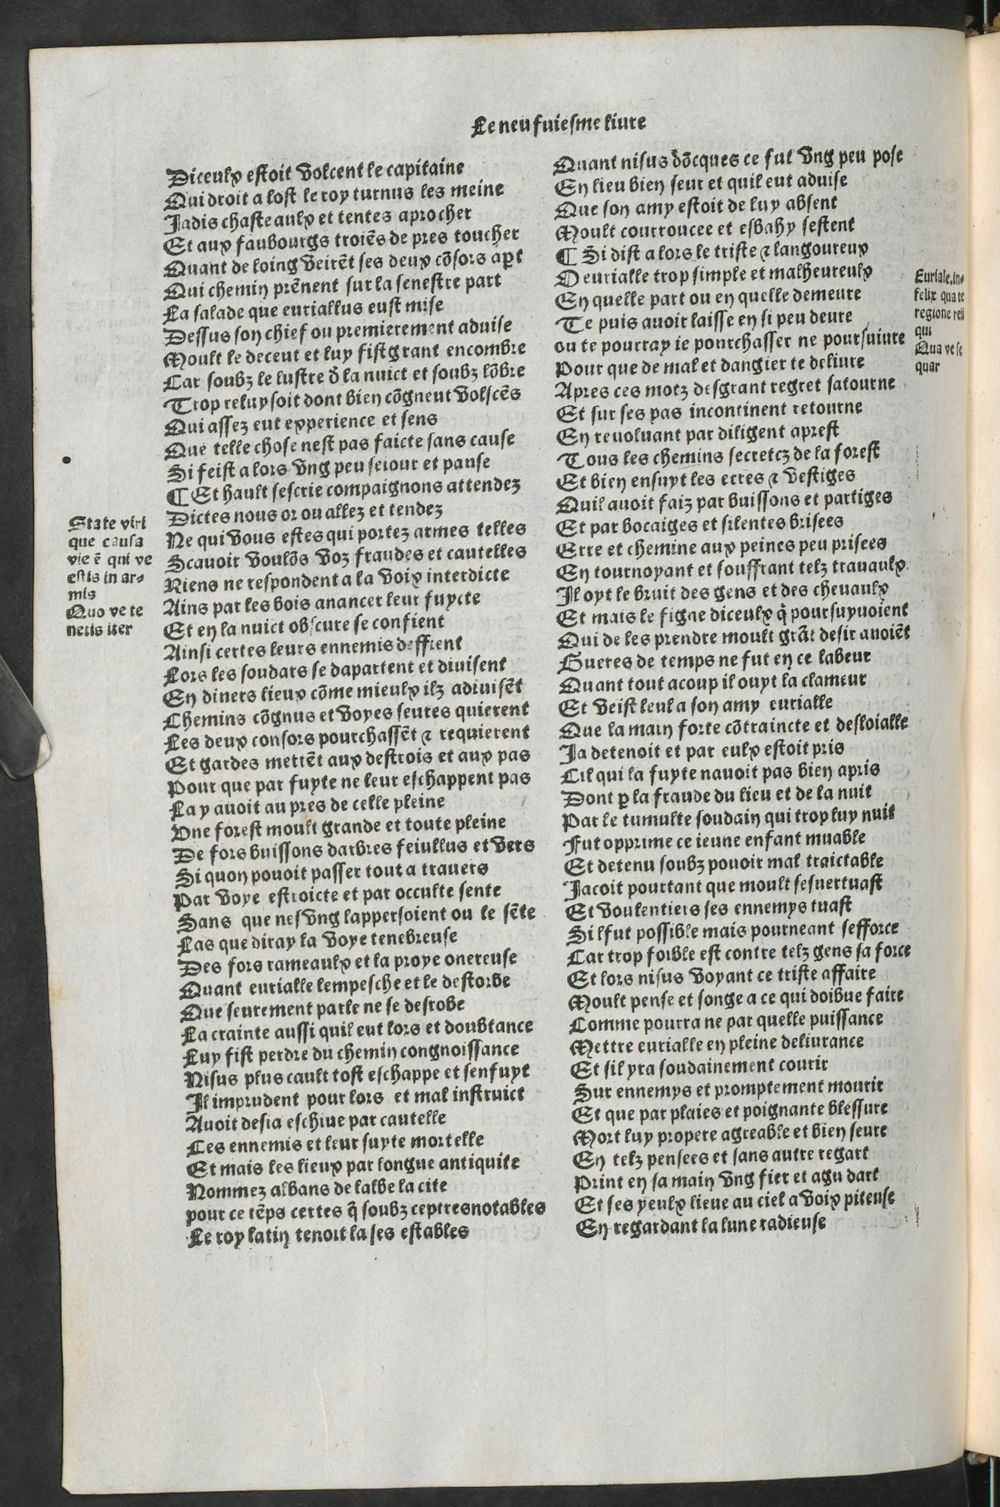 Le neufuiesme liure
Diceulx estoit volcent le capitaine
Qui droit a lost le roy turnus les meine
Jadis chasteaulx et tentes aprocher
Et aux faubourgs troiẽs de pres toucher
Quant de loing veirẽt ses deux cõsors apt
Qui chemin prẽnent sur la senestre part
La salade que euriallus eust mise
Dessus son chief ou premierement aduise
Moult le deceut et luy fist grant encombre
Car soubz le lustre d̃ la nuict et soubz lõbre
Trop reluysoit dont bien cõgneut volscẽs
Qui assez eut experience et sens
Que telle chose nest pas faicte sans cause
Si feist a lors vng peu seiour et pause
¶ Et hault sescrie compaignons attendez
Dictes nous or ou allez et tendez
Ne qui vous estes qui portez armes telles
Scauoir voulõs voz fraudes et cautelles
Riens ne respondent a la voix interdicte
Ains par les bois auancer leur fuycte
Et en la nuict obscure se confient
Ainsi certes leurs ennemis deffient
Lors les soudars se dapartent et diuisent
En diuers lieux cõme mieulx ilz aduisẽt
Chemins cõgnus et voyes seures quierent
Les deux consors pourchassẽt ⁊ requierent
Et gardes mettẽt aux destrois et aux pas
Pour que par fuyte ne leur eschappent pas
La y auoit au pres de celle pleine
Vne forest moult grande et toute pleine
De fors buissons darbres feiullus et vers
Si quon pouoit passer tout a trauers
Par voye estroicte et par occulte sente
Sans que nesvng lappersoient ou le sẽte
Las que diray la voye tenebreuse
Des fors rameaulx et la proye onereuse
Quant eurialle lempesche et le destorbe
Que seurement parle ne se desrobe
La crainte aussi quil eut lors et doubtance
Luy fist perdre du chemin congnoissance
Nisus plus cault tost eschappe et senfuyt
Il imprudent pour lors et mal instruict
Auoit desia eschiue par cautelle
Les ennemis et leur suyte mortelle
Et mais les lieux par longue antiquite
Nommez albans de lalbe la cite
pour ce tẽps certes q̃ soubz ceptres notables
Le roy latin tenoit la ses estables
State viri
que causa
vie ẽ qui ve
estis in ar-
mis
Quo ve te
netis iter
Quant nisus dõcques ce fut vng peu pose
En lieu bien seur et quil eut aduise
Que son amy estoit de luy absent
Moult courroucee et esbahy sestent
¶ Si dist a lors le triste ⁊ langoureux
O eurialle trop simple et malheureulx
En quelle part ou en quelle demeure
Te puis auoir laisse en si peu deure
ou te pourray ie pourchasser ne poursuiure
Pour que de mal et dangier te deliure
Apres ces motz desgrant regret satourne
Et sur ses pas incontinent retourne
En reuoluant par diligent aprest
Tous les chemins secretez de la forest
Et bien ensuyt les erres ⁊ vestiges
Quil auoit faiz par buissons et partiges
Et par bocaiges et silentes brisees
Erre et chemine aux peines peu prisees
En tournoyant et souffrant telz trauaulx
Il oyt le bruit des gens et des cheuaulx
Et mais le signe diceulx q̃ poursuyuoient
Qui de les prendre moult grãt desir auoiẽt
Gueres de temps ne fut en ce labeur
Quant tout acoup il ouyt la clameur
Et veist leul a son amy eurialle
Que la main forte cõtraincte et desloialle
Ja detenoit et par eulx estoit pris
Cil qui la fuyte nauoit pas bien apris
Dont ꝑ la fraude du lieu et de la nuit
Par le tumulte soudain qui trop luy nuit
Fut opprime ce ieune enfant muable
Et detenu soubz pouoir mal traictable
Jacoit pourtant que moult sesuertuast
Et voulentiers ses ennemys tuast
Sil fut possible mais pourneant sefforce
Car trop foible est contre telz gens sa force
Et lors nisus voyant ce triste affaire
Moult pense et songe a ce qui doibue faire
Comme pourra ne par quelle puissance
Mettre eurialle en pleine deliurance
Et sil yra soudainement courir
Sur ennemys et promptement mourir
Et que par plaies et poignante blessure
Mort luy propere agreable et bien seure
En telz pensees et sans autre regart
Print en sa main vng fier et agu dart
Et ses yeulx lieue au ciel a voix piteuse
En regardant la lune radieuse
Euriale.in-
felix qua te
regione reli
qui
Qua ve se
quar